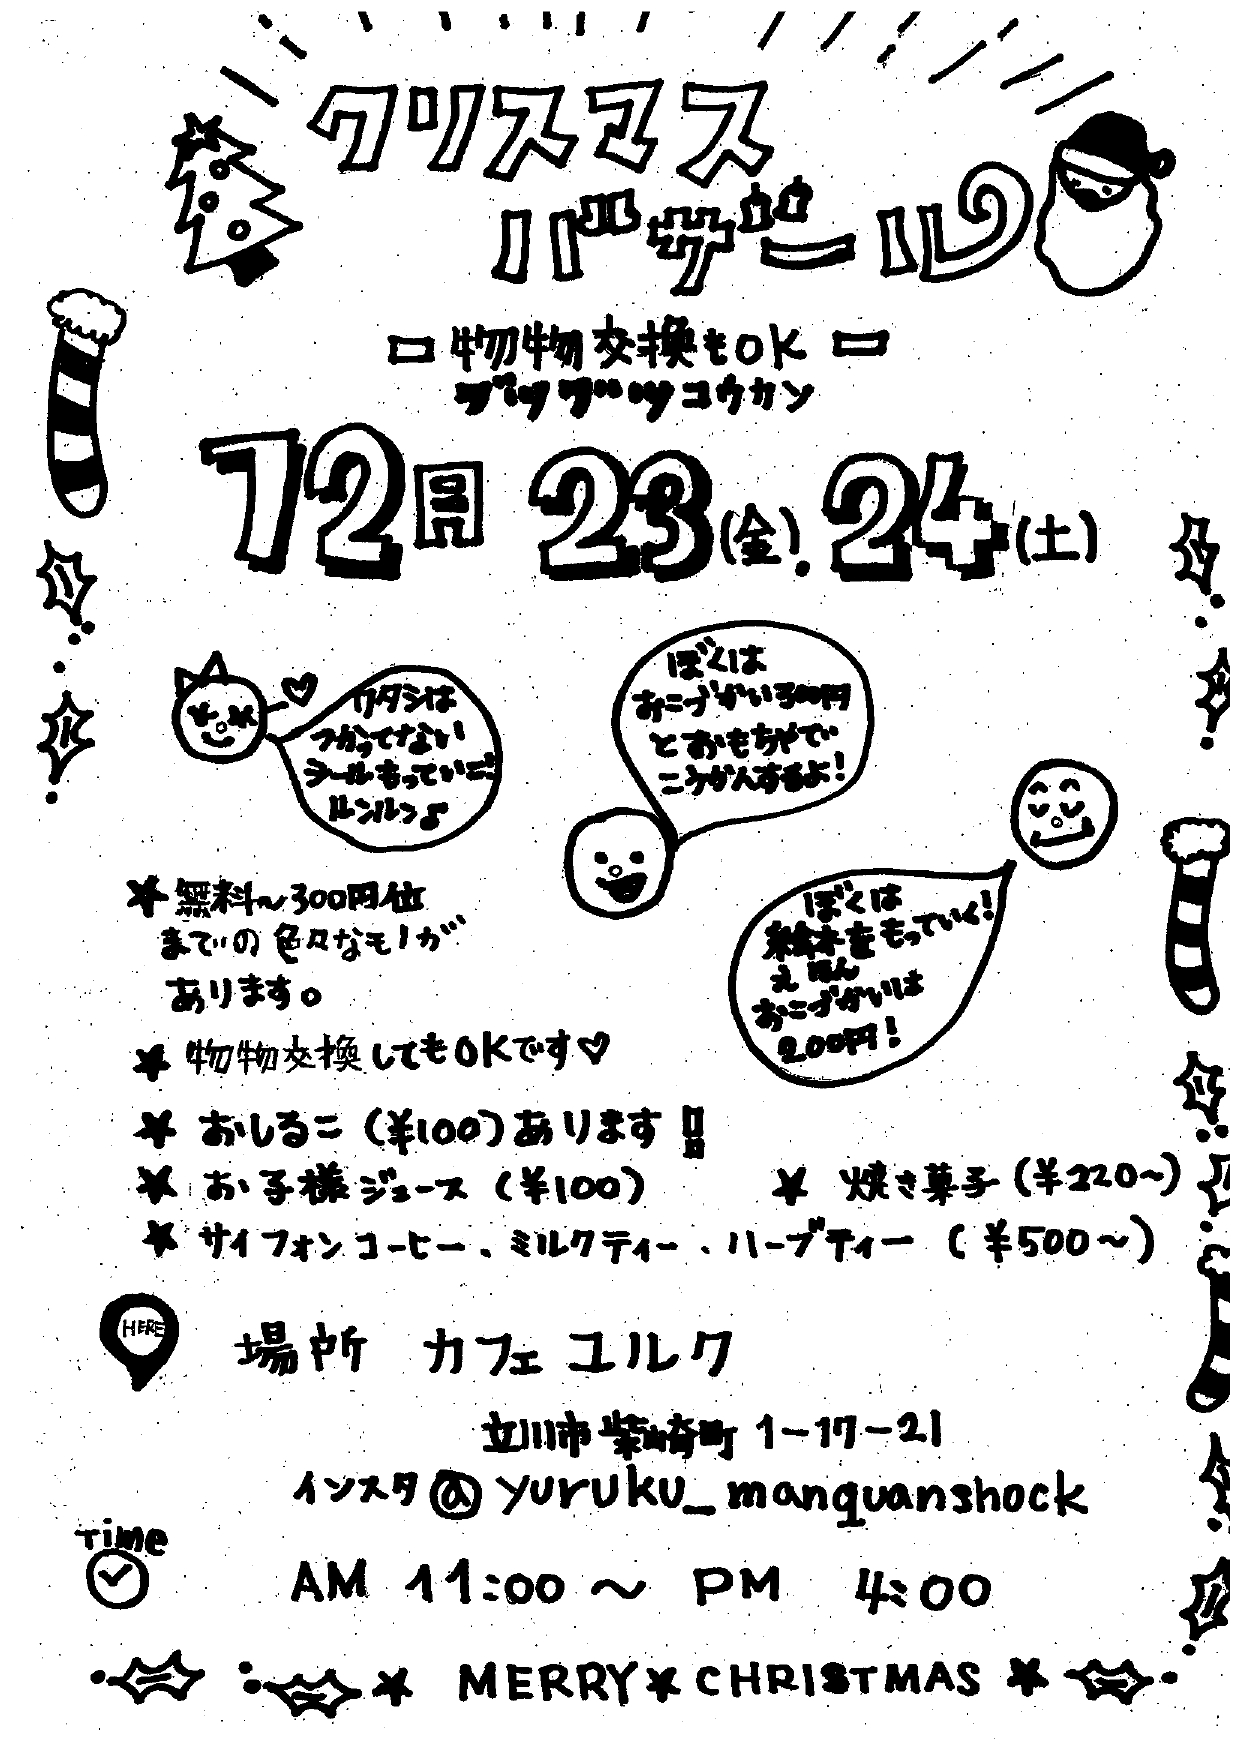 クリスマス
バザール
物物交換もOK
ブツブツコウカン
12月 23(金). 24(土)
ワタシは
つかってない
シールもっていこ!
ルンルン♪
ぼくは
おこづかい300円
とおもちゃで
こうかんするよ!
ぼくは
絵本をもっていく!
えほん
おこづかいは
200円!
★ 無料〜300円位
までの色々なモノが
あります。
★ 物物交換してもOKです♡
★ おしるこ (¥100) あります!!
★ お子様ジュース (¥100)
★ 焼き菓子 (¥220〜)
★ サイフォンコーヒー、ミルクティー、ハーブティー (¥500〜)
HERE
場所 カフェ ユルク
立川市柴崎町 1-17-21
インスタ @yuruku_manquanshock
Time
AM 11:00 〜 PM 4:00
★ MERRY★CHRISTMAS ★